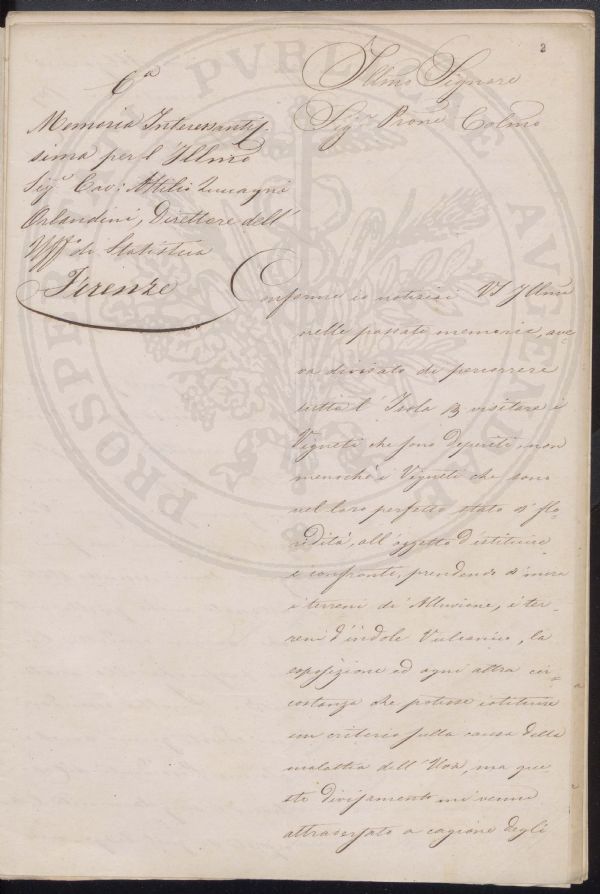 2
6ª
Memoria Interessantis-
sima per l'Illmo
Sigr Cav: Attilio Zuccagni
Orlandini, Direttore dell'
Uffo di Statistica
Firenze
Illmo Signore
Sigr Prone Colmo
Conforme io notiziai VS Illma
nelle passate memorie, ave-
va divisato di percorrere
tutta l'Isola per visitare i
Vigneti che sono deperiti, non
menochè i Vigneti che sono
nel loro perfetto stato di flo-
ridità, all'oggetto d'istituire
i confronti, prendendo di mira
i terreni di Alluvione, i ter-
reni d'indole Vulcanica, la
esposizione ed ogni altra cir-
costanza che potesse istituire
un criterio sulla causa della
malattia dell'Uva, ma que
sto divisamento mi venne
attraversato a cagione degli
PROSPERITATI PVBLICAE AVGENDAE